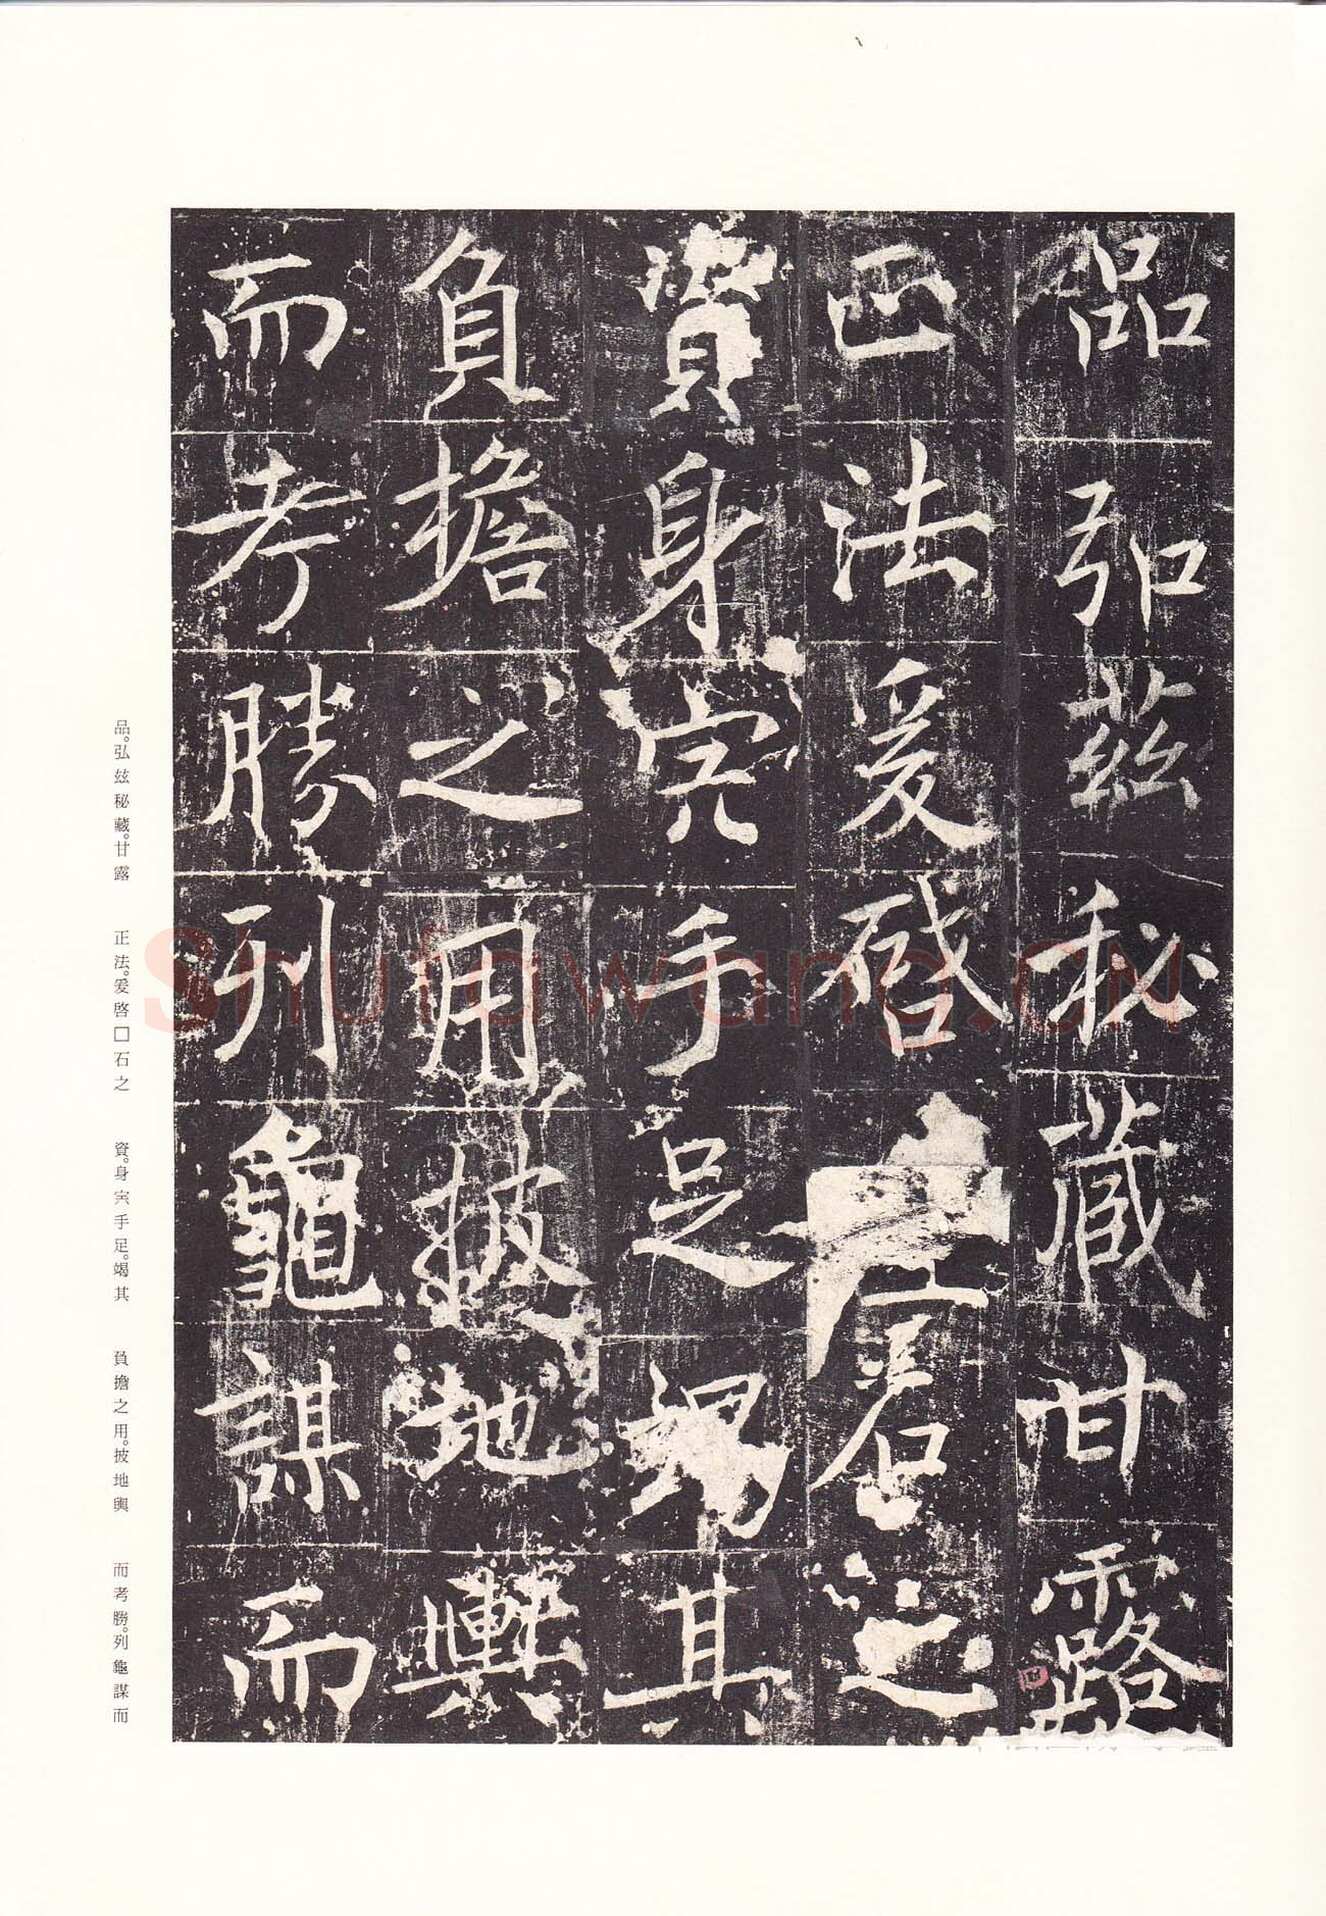 品弘茲秘藏甘露
正法爰啓石之
資身宍手足竭其
負擔之用披地輿
而考勝列龜謀而
品。弘玆秘藏。甘露　正法。爰啓□石之　資。身宍手足。竭其　負擔之用。披地輿　而考勝。列龜謀而
Shufawang.CN